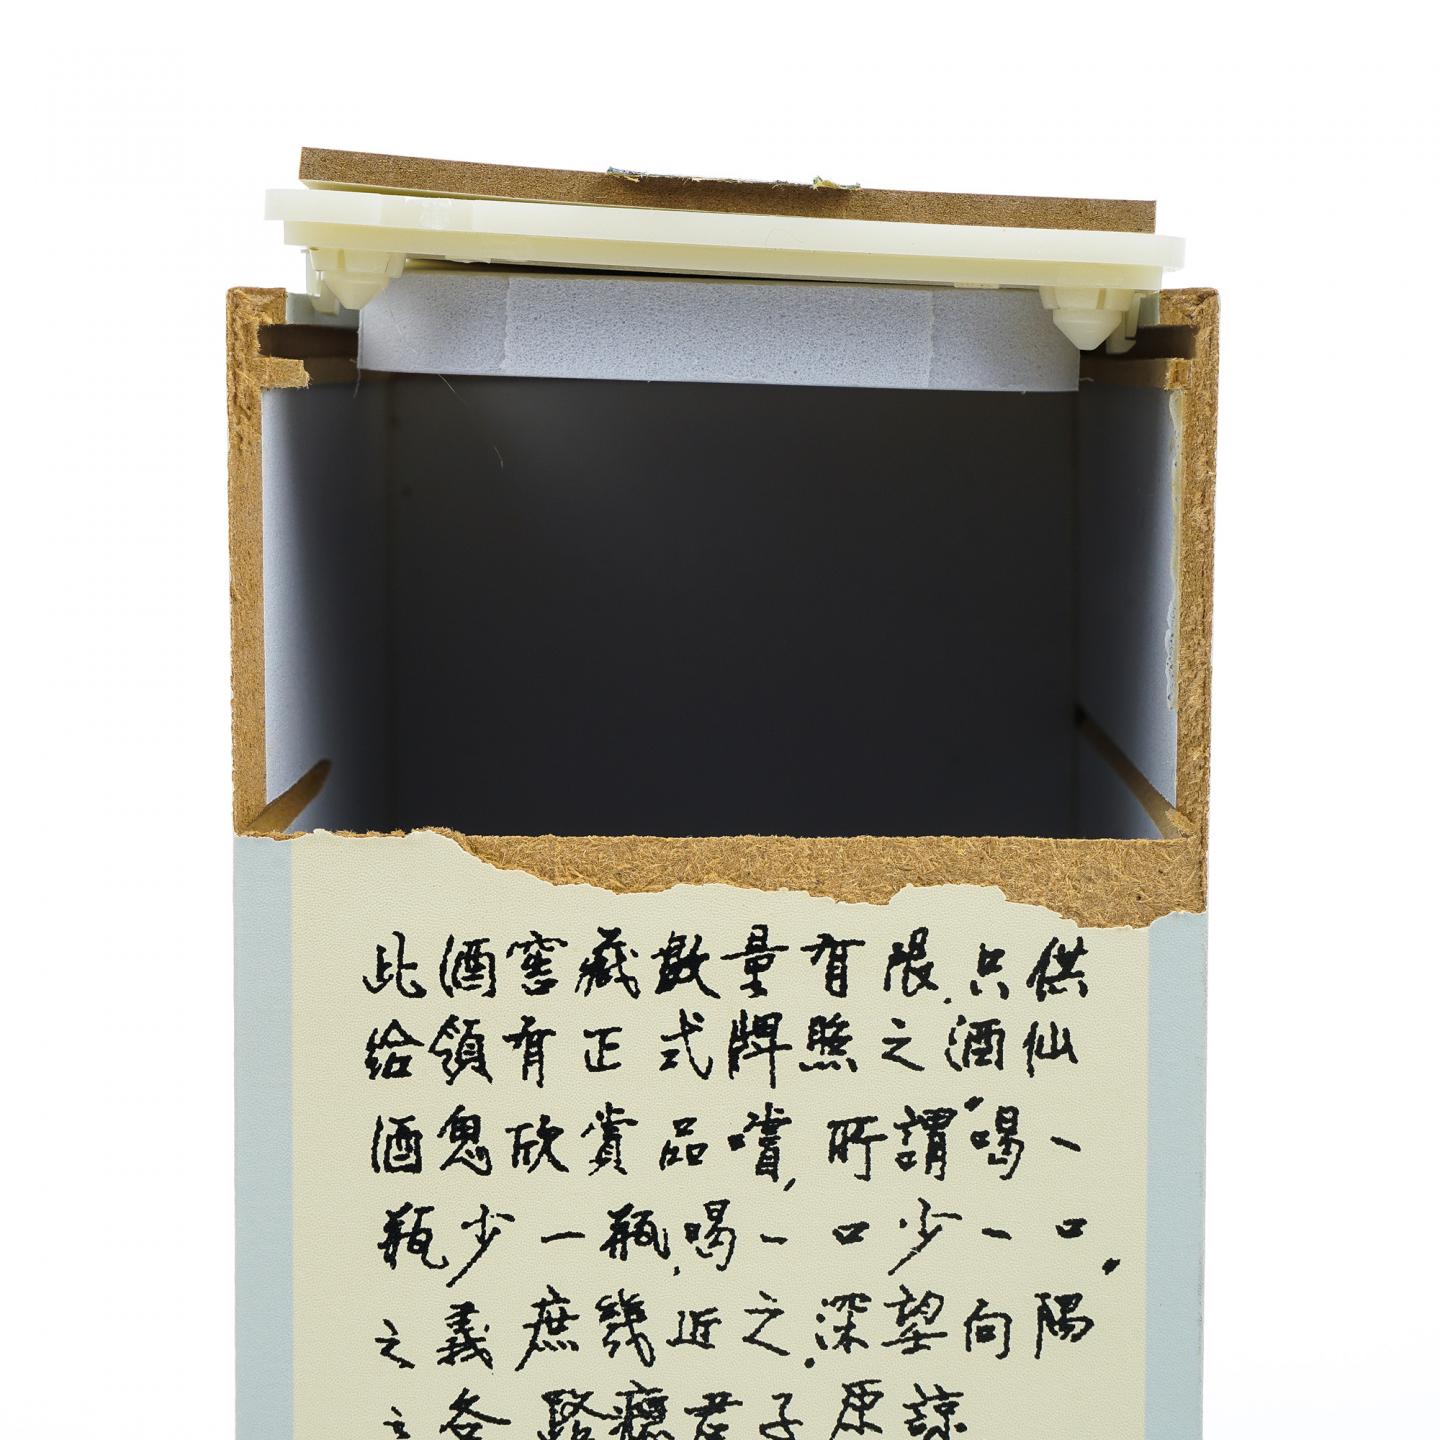 此酒窖藏數量有限,只供
給領有正式牌照之酒仙
酒鬼欣賞品嚐,所謂"喝一
瓶少一瓶,喝一口少一口"
之義庶幾近之,深望向隅
之各路癮君子原諒